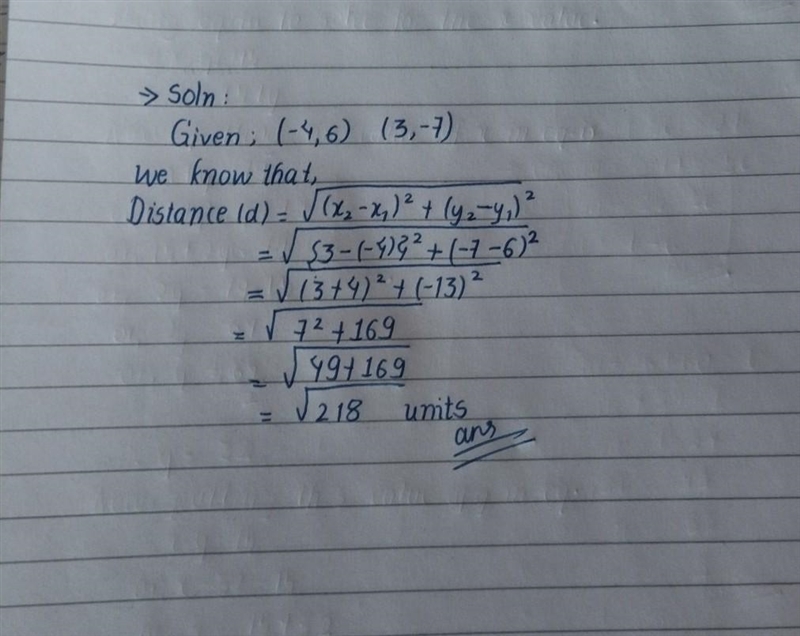 → Soln:
Given; (-4,6) (3,-7)
we know that,
Distance (d) = √(x₂-x₁)² + (y₂-y₁)²
= √{3-(-4)}² + (-7-6)²
= √(3+4)² + (-13)²
= √7² + 169
= √49+169
= √218 units
ans